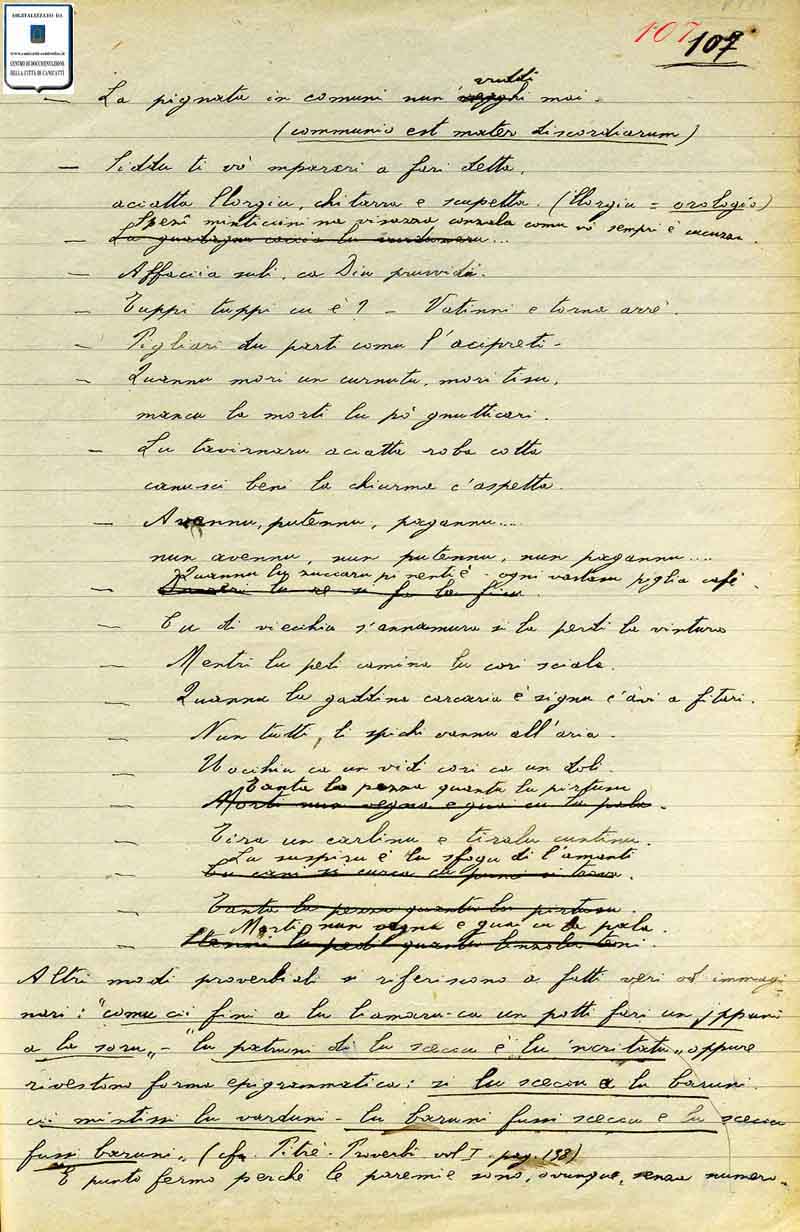 DIGITALIZZATO DA
CENTRO DI DOCUMENTAZIONE
DELLA CITTÀ DI CANICATTÌ
107 107
vuddi
— La pignata in comuni nun mai -
(communio est mater discordiarum)
— Siddu ti vò mparari a fari detta,
accatta llorgiu, chitarra e scupetta. (llorgiu = orologio)
minticcini na visazza conzala comu vò sempri è cucuzza.
— La guadagna caccia lu
— Affaccia suli, ca Diu pruvvidi.
— Tuppi tuppi cu è? - Vatinni e torna arrè.
— Pigliari du parti comu l'acipreti -
— Quannu mori un curnutu, mori tisu,
mancu la morti lu pò gnutticari.
— Lu tavirnaru accatta roba cotta
canusci beni la chiurma c'aspetta.
— Avennu, putennu, pagannu....
nun avennu, nun putennu, nun pagannu....
Quannu lu zuccaru pi nenti è - ogni vastasu piglia cafè.
—
— Cu di vecchia s'annamura si la perdi la vintura
— Mentri lu pedi camina lu cori sciala.
— Quannu la gaddina carcaria è signu c'àvi a fitari.
— Nun tutti, li spichi vannu all'aria.
— Uocchiu ca un vidi cori ca un doli.
Tanta la pezza quantu lu pirtusu
— Morti nun vegna e guai cu la pala.
— Tira un carlinu e tiralu cuntinu.
Lu suspiru è lu sfogu di l'amanti
— Lu cani si curca cu
— Tanta la pezza quantu lu pirtusu.
Morti nun vegna e guai cu la pala.
— Stenni lu pedi quantu linzolu teni.
Altri modi proverbiali si riferiscono a fatti veri od immagi-
nari: "comu ci finì a lu liamaru - ca un potti fari un jppuni
a la soru„ - "lu patruni di lu sceccu è lu 'ncritatu„ oppure
rivestono forma epigrammatica: si lu sceccu a lu baruni
ci mintissi lu varduni - lu baruni fussi sceccu e lu sceccu
fussi baruni„ (cfr. Pitrè - Proverbi vol I - pag. 198)
E punto fermo perché le paremie sono, ovunque, senza numero -